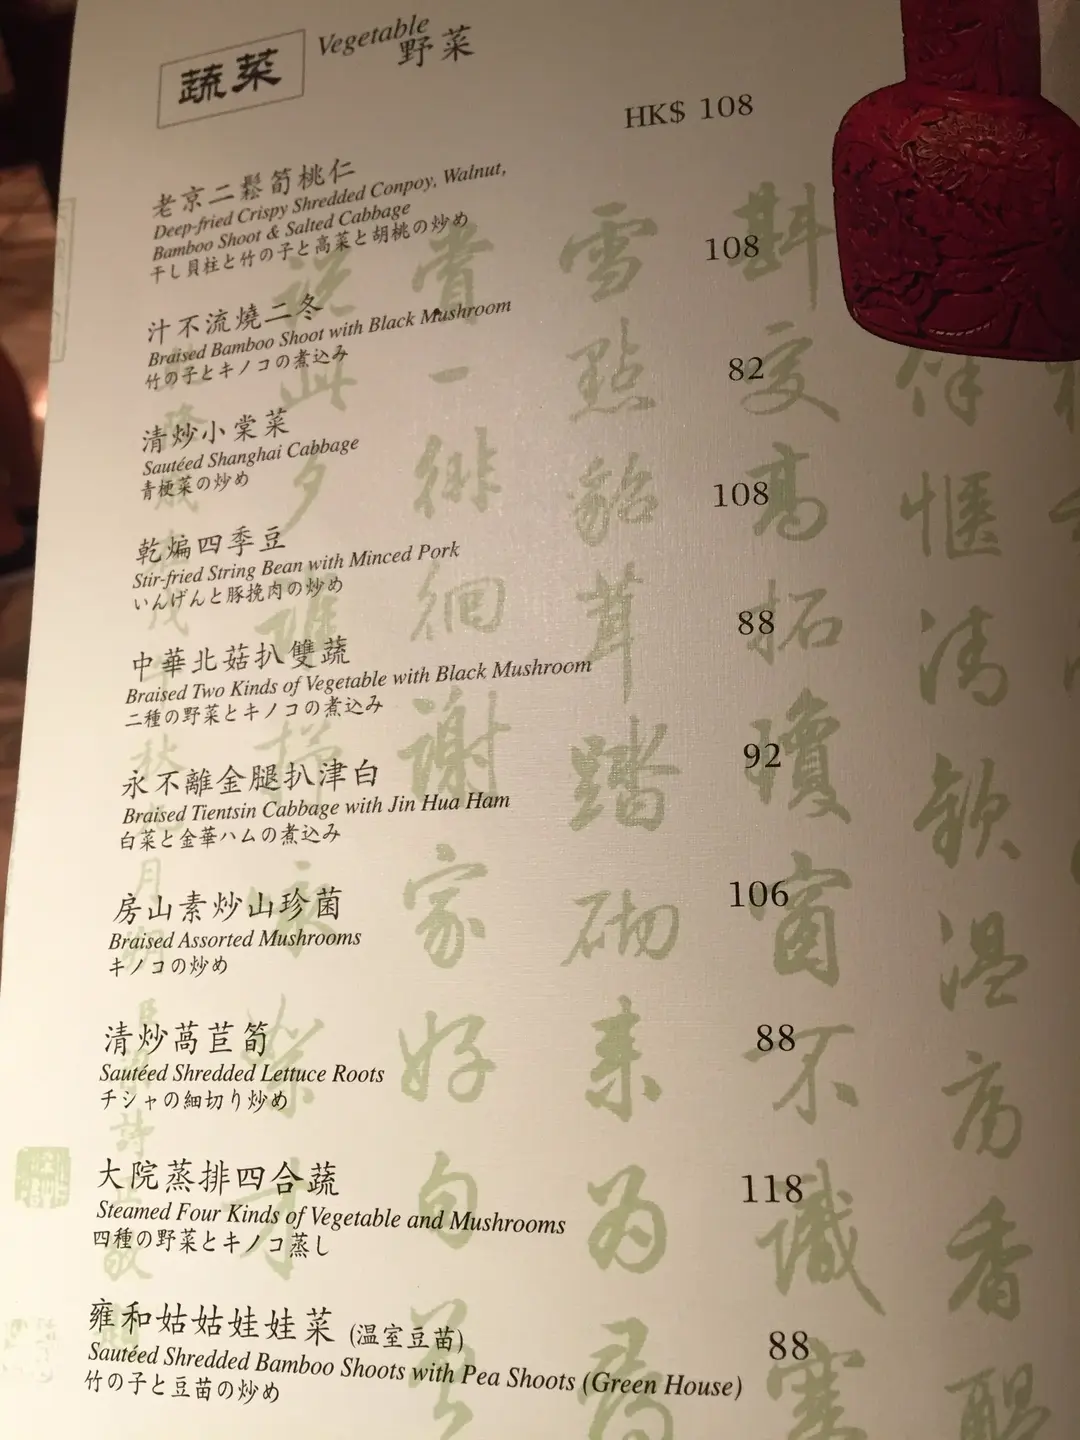 蔬菜 Vegetable
野菜
HK$ 108
老京二鬆筍桃仁
Deep-fried Crispy Shredded Conpoy, Walnut,
Bamboo Shoot & Salted Cabbage
干し貝柱と竹の子と高菜と胡桃の炒め
108
汁不流燒二冬
Braised Bamboo Shoot with Black Mushroom
竹の子とキノコの煮込み
82
清炒小棠菜
Sautéed Shanghai Cabbage
青梗菜の炒め
108
乾煸四季豆
Stir-fried String Bean with Minced Pork
いんげんと豚挽肉の炒め
88
中華北菇扒雙蔬
Braised Two Kinds of Vegetable with Black Mushroom
二種の野菜とキノコの煮込み
92
永不離金腿扒津白
Braised Tientsin Cabbage with Jin Hua Ham
白菜と金華ハムの煮込み
106
房山素炒山珍菌
Braised Assorted Mushrooms
キノコの炒め
88
清炒萵苣筍
Sautéed Shredded Lettuce Roots
チシャの細切り炒め
118
大院蒸排四合蔬
Steamed Four Kinds of Vegetable and Mushrooms
四種の野菜とキノコ蒸し
88
雍和姑姑娃娃菜 (溫室豆苗)
Sautéed Shredded Bamboo Shoots with Pea Shoots (Green House)
竹の子と豆苗の炒め